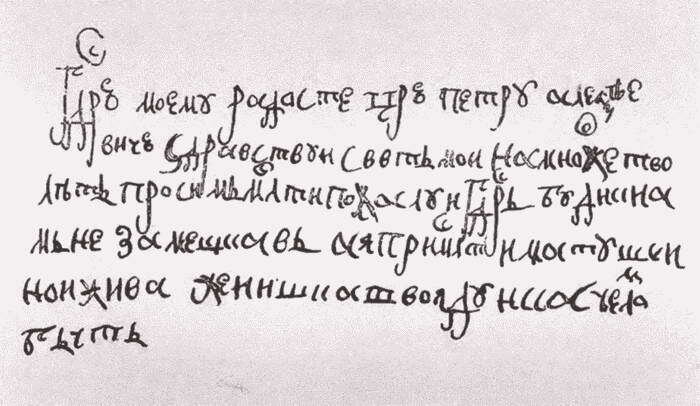 Гсдрю моему радасте црю петру алеѯѣе
вичю здравствуи светъ мои на множество
лѣтъ просимъ млсти пожалуи гсдрь буди кна
мъ не замешкавъ а я при млсти матушки
нои жива женишка твоя дунка челом
бьетъ